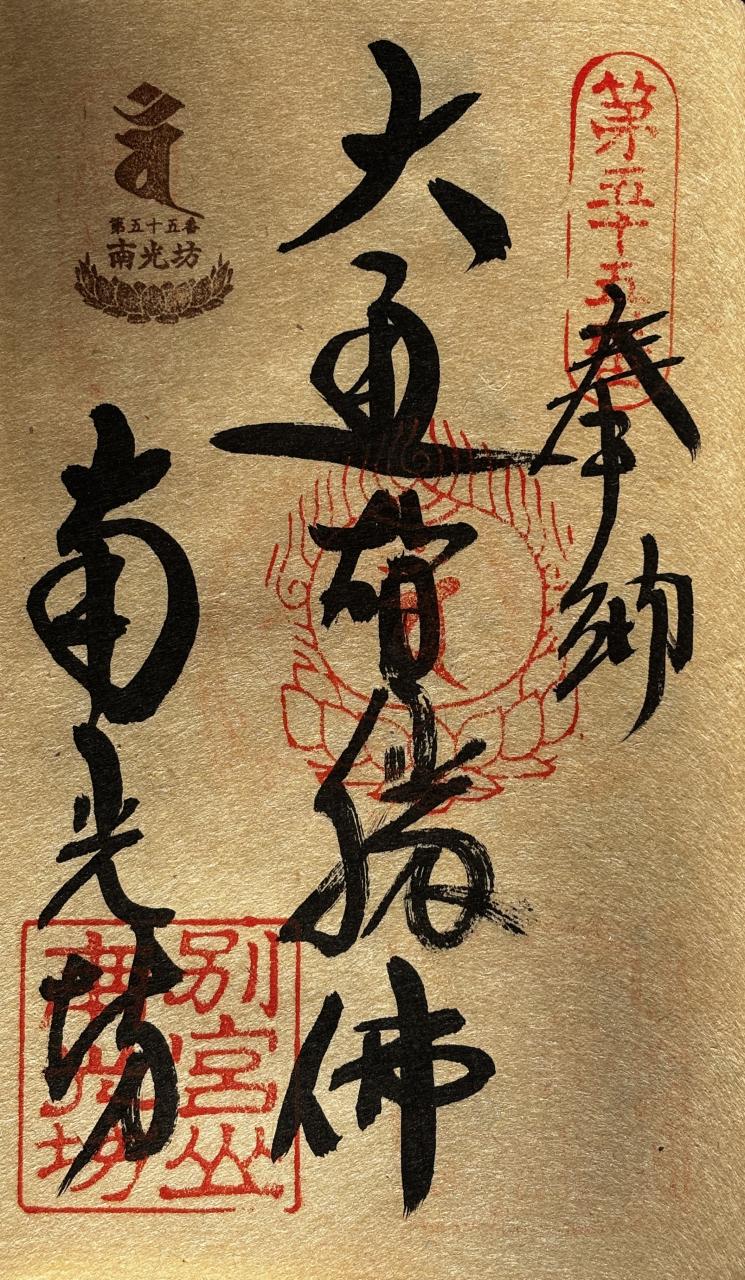 第五十五番
奉納
大通智勝佛
第五十五番
南光坊
南光坊
別宮山
南光坊